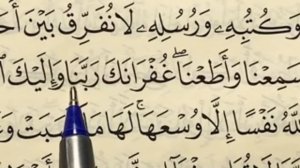 وَكُتُبِهِۦ وَرُسُلِهِۦ لَا نُفَرِّقُ بَيْنَ
سَمِعْنَا وَأَطَعْنَا ۖ غُفْرَانَكَ رَبَّنَا وَإِلَيْكَ
نَفْسًا إِلَّا وُسْعَهَا ۚ لَهَا مَا